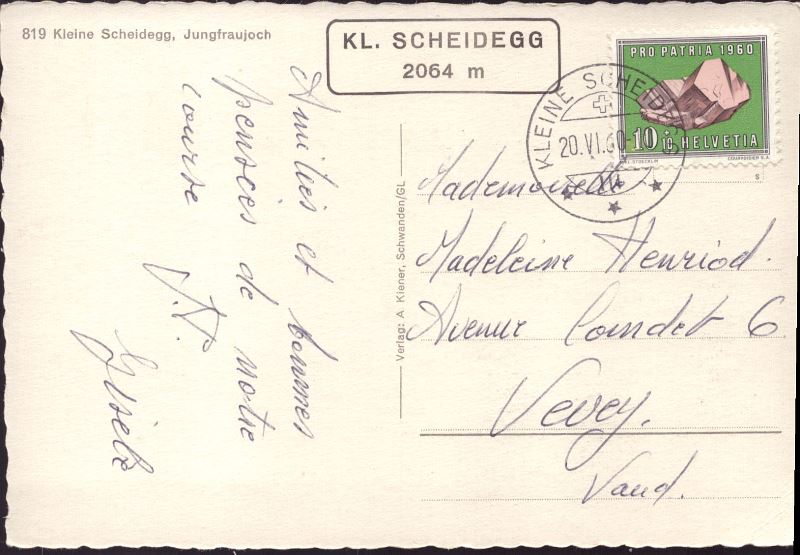 819 Kleine Scheidegg, Jungfraujoch
KL. SCHEIDEGG
2064 m
PRO PATRIA 1960
10+10 HELVETIA
COURVOISIER S.A.
KLEINE SCHEIDEGG
20.VI.60
S
Amitiés et bonnes
pensées de notre
course
Gisèle
Verlag: A Kiener, Schwanden/GL
Mademoiselle
Madeleine Henriod.
Avenue Coindet 6
Vevey.
Vaud.